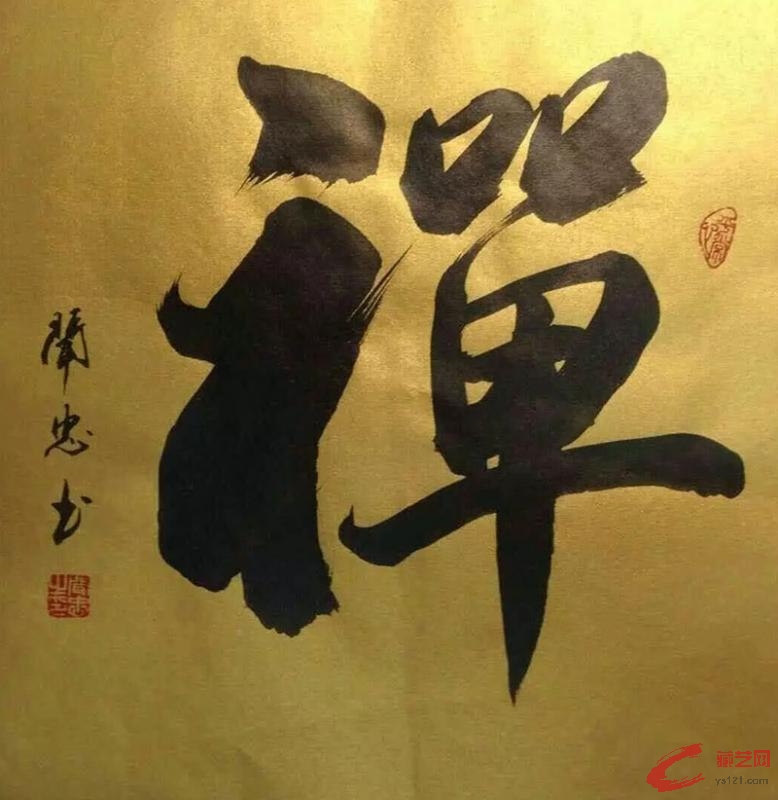 禪
聞忠书
藏艺网
ys121.com